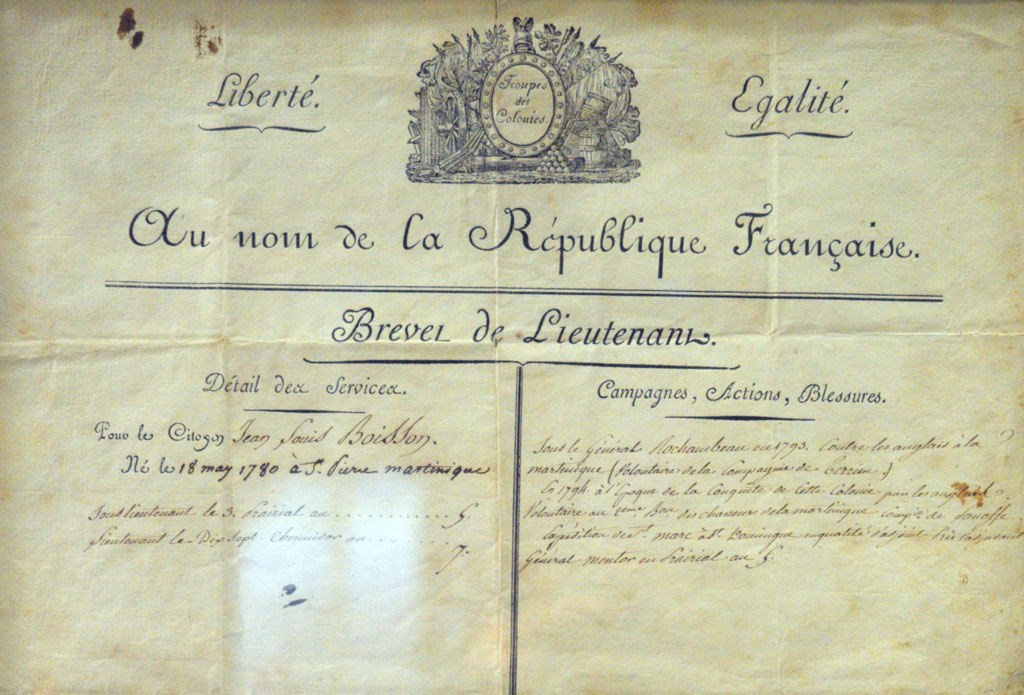 Liberté.
Troupes
des
Colonies.
Egalité.
Au nom de la République Française.
Brevet de Lieutenant.
Détail des Services.
Pour le Citoyen Jean Louis Boisson.
Né le 18 may 1780 à St. Pierre martinique
Sous lieutenant le 3. Prairial an ............ 5.
Lieutenant le Dix Sept Thermidor an ........ 7.
Campagnes, Actions, Blessures.
Sous le Général Rochambeau en 1793. Contre les anglais à la
martinique (Volontaire de la Compagnie de
En 1794 à l'Epoque de la Conquête de Cette Colonie par les anglais
Volontaire au 2eme Bon des chasseurs de la martinique Comp.e de
Expédition de St. marc à St. Domingue en qualité d'adjoint Près l'adjudant
Général mentor en Prairial an 5.